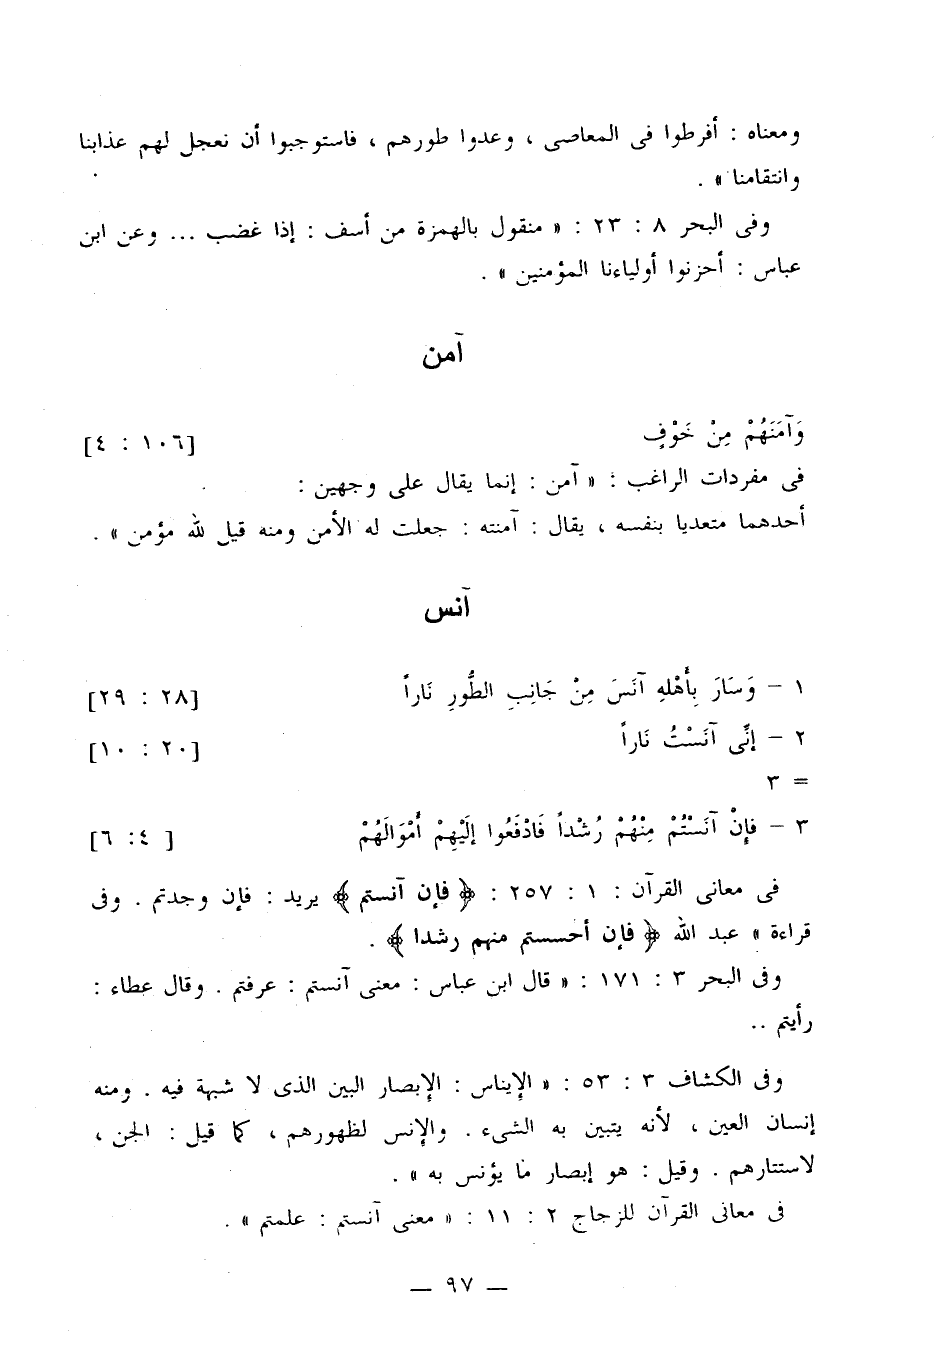 ومعناه : أفرطوا فى المعاصى ، وعدوا طورهم ، فاستوجبوا أن نعجل لهم عذابنا
وانتقامنا » .
وفى البحر ٨ : ٢٣ : « منقول بالهمزة من أسف : إذا غضب ... وعن ابن
عباس : أحزنوا أولياءنا المؤمنين » .
آمن
وَآمَنَهُمْ مِنْ خَوْفٍ [١٠٦ : ٤]
فى مفردات الراغب : « آمن : إنما يقال على وجهين :
أحدهما متعديا بنفسه ، يقال : آمنته : جعلت له الأمن ومنه قيل لله مؤمن » .
آنس
١ – وَسَارَ بِأَهْلِهِ آنَسَ مِنْ جَانِبِ الطُّورِ نَاراً [٢٨ : ٢٩]
٢ – إنِّى آنَسْتُ نَاراً [٢٠ : ١٠]
= ٣
٣ – فإِنْ آنَسْتُمْ مِنْهُمْ رُشْداً فَادْفَعُوا إلَيْهِمْ أَمْوَالَهُمْ [ ٤ : ٦]
فى معانى القرآن : ١ : ٢٥٧ : ﴿ فإن آنستم ﴾ يريد : فإن وجدتم . وفى
قراءة » عبد الله ﴿ فإن أحسستم منهم رشدا ﴾ .
وفى البحر ٣ : ١٧١ : « قال ابن عباس : معنى آنستم : عرفتم . وقال عطاء :
رأيتم ..
وفى الكشاف ٣ : ٥٣ : « الإيناس : الإبصار البين الذى لا شبهة فيه . ومنه
إنسان العين ، لأنه يتبين به الشىء . والإنس لظهورهم ، كما قيل : الجن ،
لاستتارهم . وقيل : هو إبصار ما يؤنس به » .
فى معانى القرآن للزجاج ٢ : ١١ : « معنى آنستم : علمتم » .
— ٩٧ —